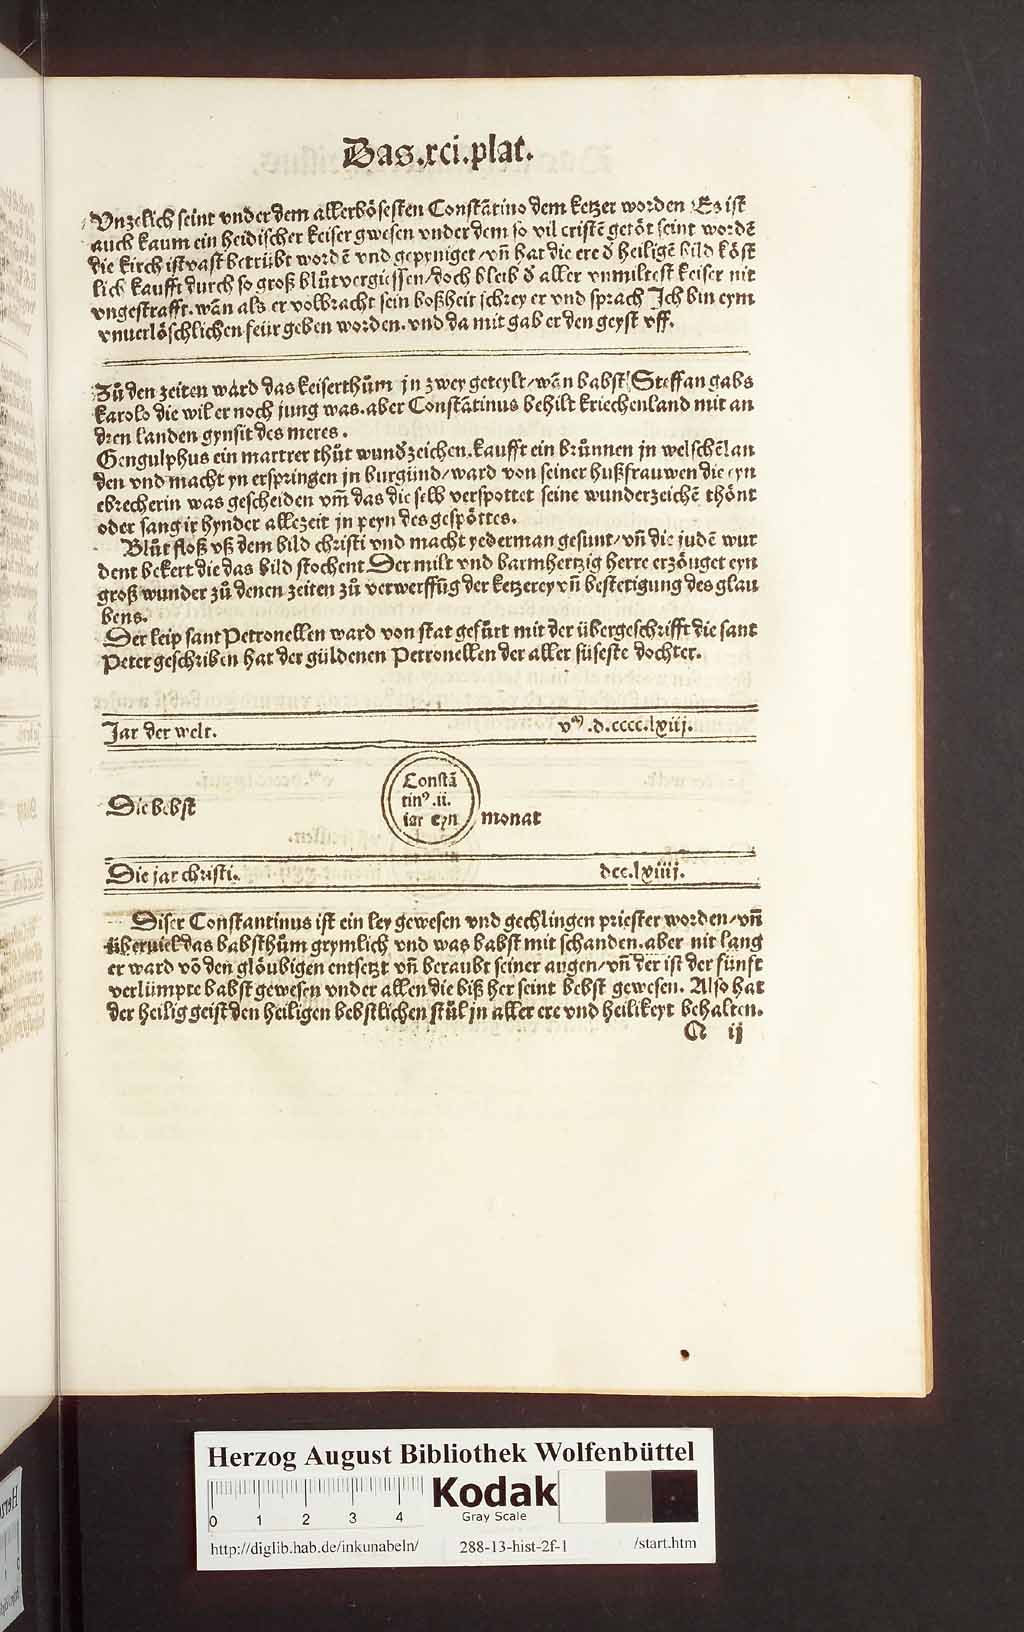 Das.xci.plat.
Vnzelich seint vnder dem allerbösesten Constātino dem ketzer worden Es ist
auch kaum ein heidischer keiser gwesen vnder dem so vil cristē getöt seint wordē
die kirch ist vast betrübt wordē vnd gepyniget/vn̄ hat die ere đ heiligē bild köst
lich kaufft durch so groß blůtvergiessen/doch bleib đ aller vnmiltest keiser nit
vngestrafft.wān als er volbracht sein boßheit schrey er vnd sprach Ich bin eym
vnuerlöschlichen feür geben worden.vnd da mit gab er den geyst vff.
Zů den zeiten ward das keiserthům jn zwey geteylt/wān babst Steffan gabs
karolo die wil er noch jung was.aber Constātinus behilt kriechenland mit an
dren landen gynsit des meres.
Gengulphus ein martrer thůt wundđzeichen.kaufft ein brůnnen jn welschēlan
den vnd macht yn erspringen jn burgund/ward von seiner hußfrauwen die eyn
ebrecherin was gescheiden vm̄ das die selb verspottet seine wunderzeichē thönt
oder sang ir hynder allezeit jn peyn des gespöttes.
Blůt floß vß dem bild christi vnd macht yederman gesunt/vn̄ die judē wur
dent bekert die das bild stochent Der milt vnd barmhertzig herre erzöuget eyn
groß wunder zů denen zeiten zů verwerffūg der ketzerey vn̄ bestetigung des glau
bens.
Der leip sant Petronellen ward von stat gefůrt mit der übergeschrifft die sant
Peter geschriben hat der güldenen Petronellen der aller süseste dochter.
Jar der welt. vᵐ.d.cccc.lxiij.
Constā
tinꝰ.ii.
iar eyn
Die bebst monat
Die jar christi. dcc.lxiiij.
Diser Constantinus ist ein ley gewesen vnd gechlingen priester worden/vn̄
überuiel das babsthům grymlich vnd was babst mit schanden.aber nit lang
er ward vō den glöubigen entsetzt vn̄ beraubt seiner augen/vn̄ der ist der fünft
verlümpte babst gewesen vnder allen die biß her seint bebst gewesen. Also hat
der heilig geist den heiligen bebstlichen stůl jn aller ere vnd heilikeyt behalten.
Q ij
Herzog August Bibliothek Wolfenbüttel
Kodak
Gray Scale
0 1 2 3 4
http://diglib.hab.de/inkunabeln/ 288-13-hist-2f-1 /start.htm